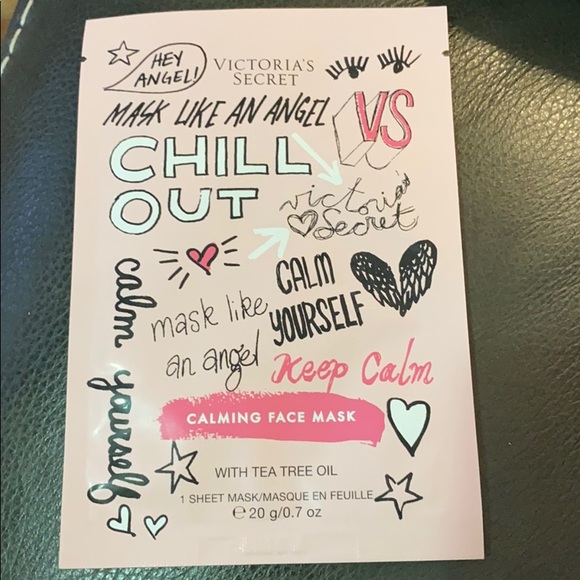 HEY
ANGEL!
VICTORIA'S
SECRET
MASK LIKE AN ANGEL
VS
CHILL
OUT
victoria's
Secret
CALM
YOURSELF
mask like
an angel
Keep Calm
calm yourself
CALMING FACE MASK
WITH TEA TREE OIL
1 SHEET MASK/MASQUE EN FEUILLE
℮ 20 g/0.7 oz